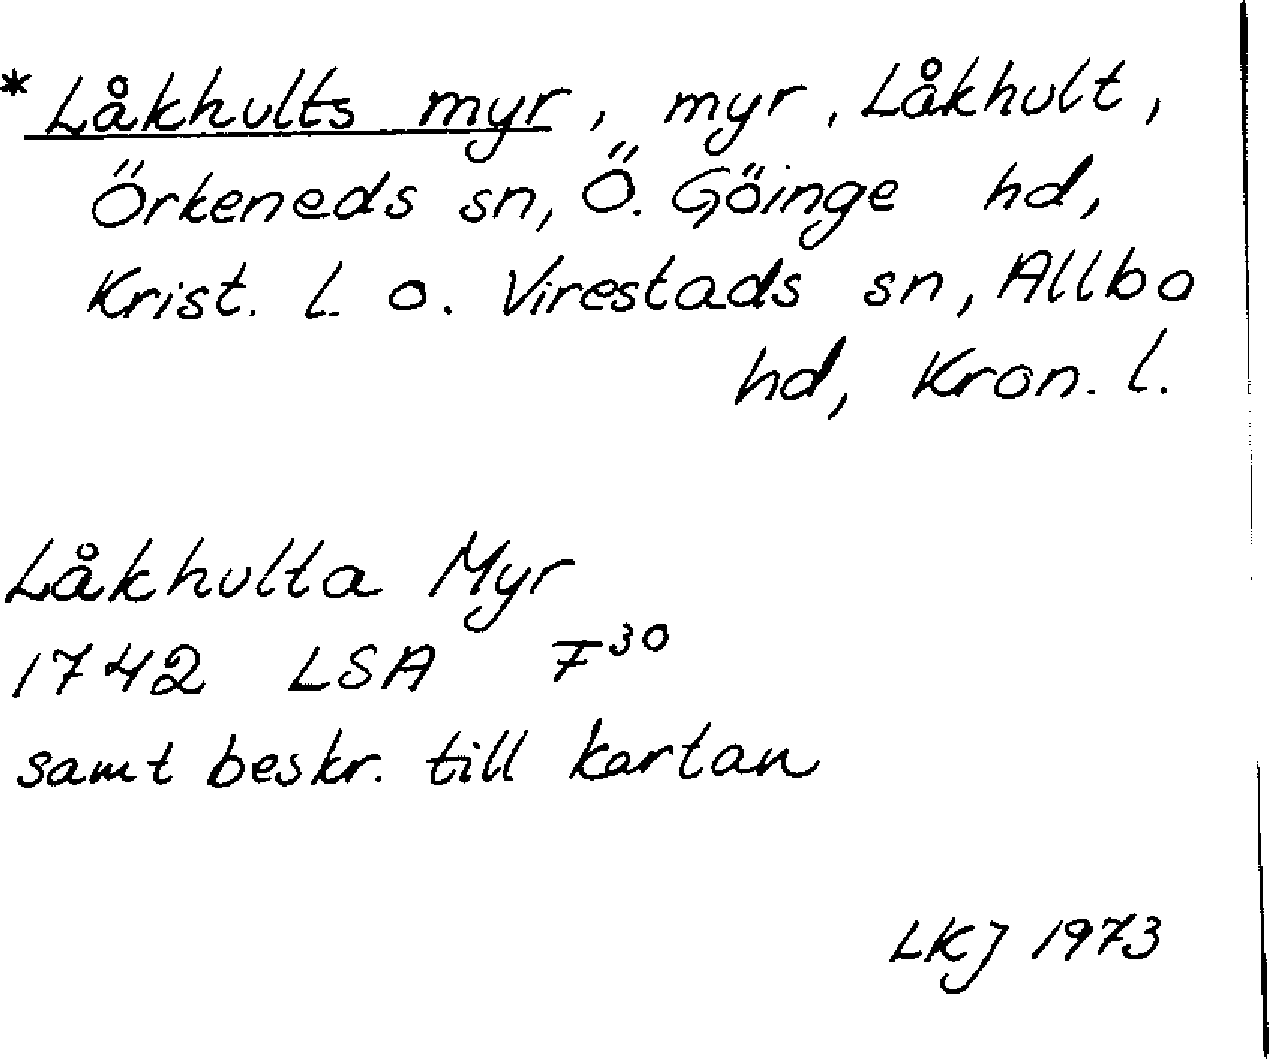 * Låkhults myr, myr, Låkhult,
Örkeneds sn, Ö. Göinge hd,
Krist. l. o. Virestads sn, Allbo
hd, Kron. l.
Låkhulta Myr
1742 LSA F³⁰
samt beskr. till kartan
LKJ 1973